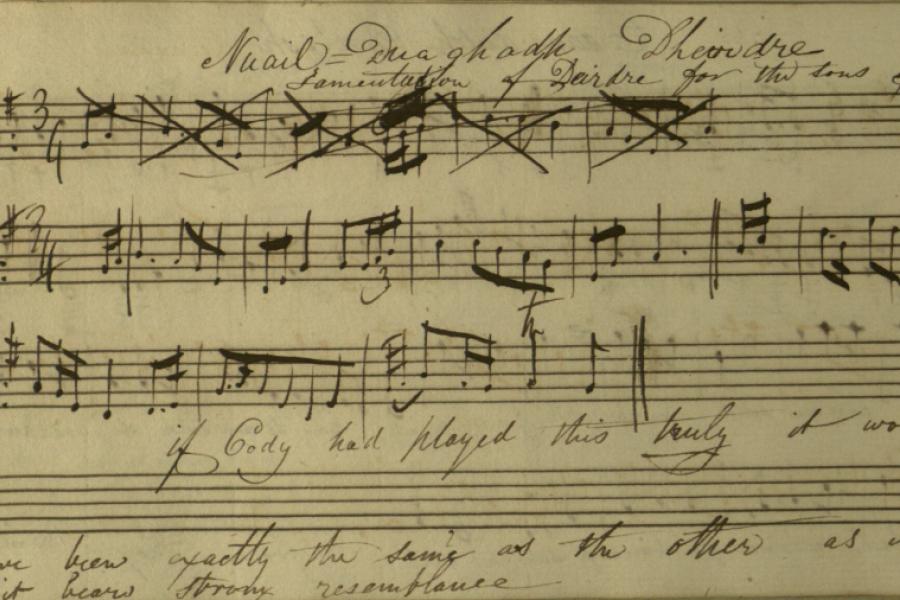 Nuail-Duaghadh Dheirdre
Lamentation of Deirdre for the sons
3
4
3
4
3
tr
if Cody had played this truly it wo
ve been exactly the same as the other as
it bears strong resemblance